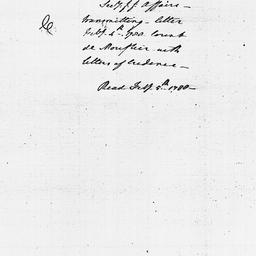 Secy. f. f. Affairs—
transmitting letter
Feby. 4th. from Count
de Moustier with
letters of credence—
Read Feby. 5th. 1788—